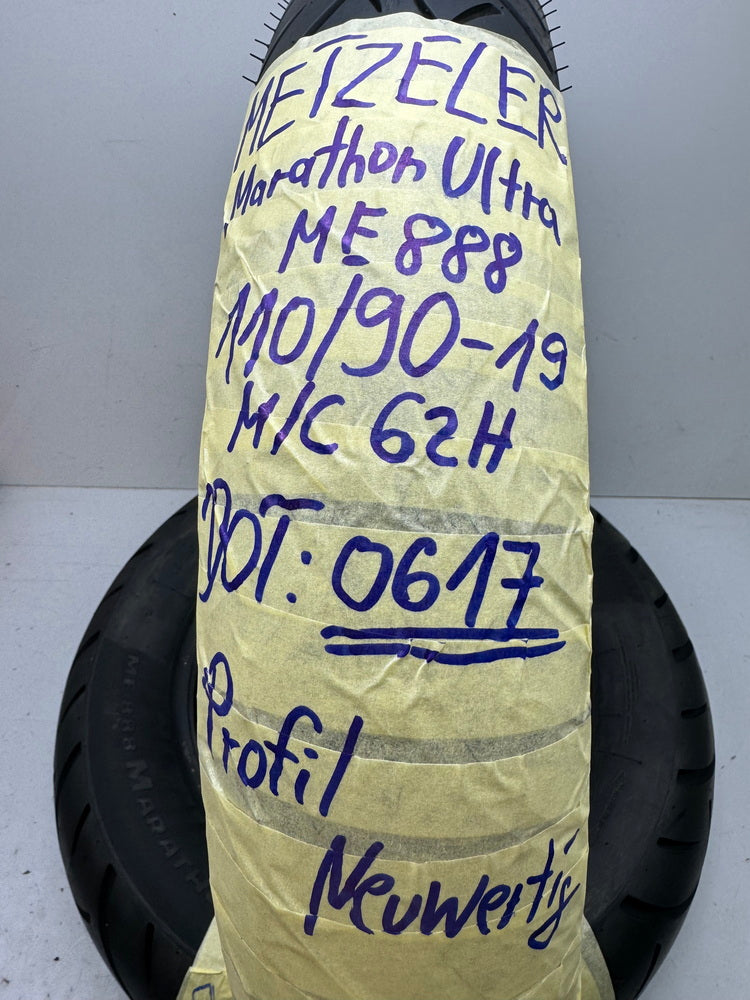 METZELER
Marathon Ultra
ME 888
110/90-19
M/C 62H
DOT: 0617
Profil
Neuwertig
ME 888 MARATH